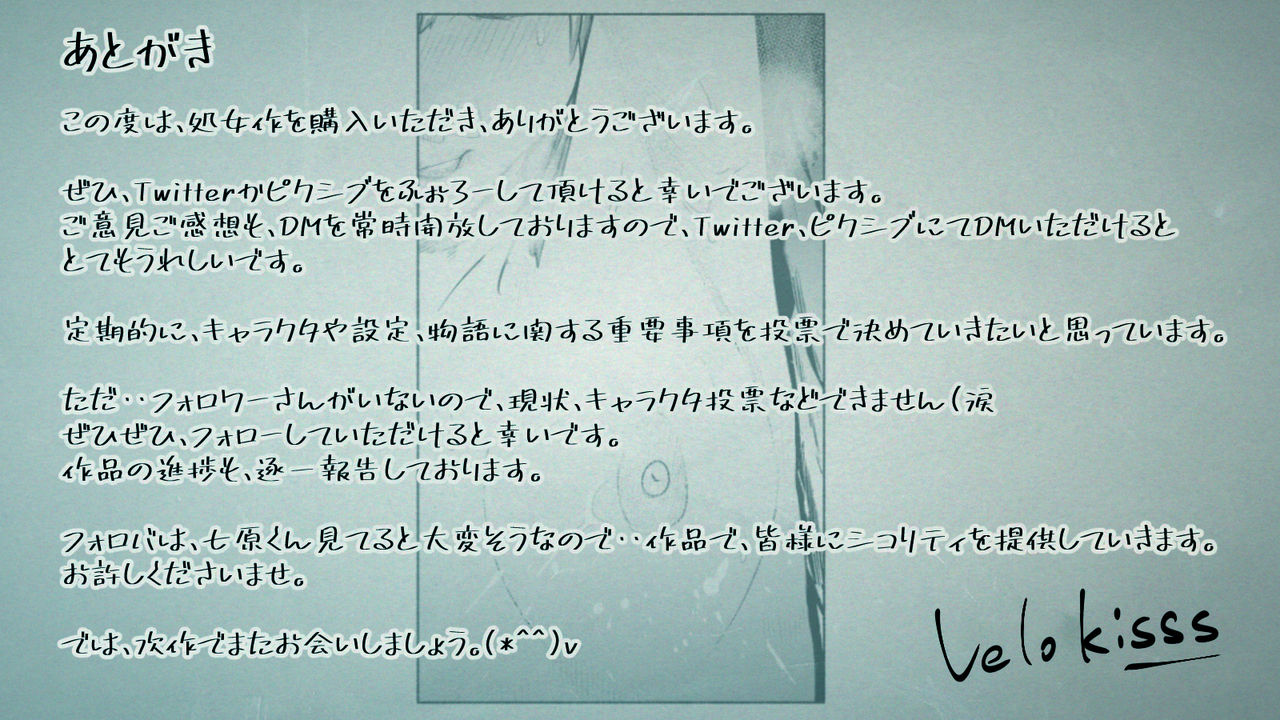 あとがき
この度は、処女作を購入いただき、ありがとうございます。
ぜひ、Twitterかピクシブをふぉろーして頂けると幸いでございます。
ご意見ご感想も、DMを常時開放しておりますので、Twitter、ピクシブにてDMいただけると
とてもうれしいです。
定期的に、キャラクタや設定、物語に関する重要事項を投票で決めていきたいと思っています。
ただ‥フォロワーさんがいないので、現状、キャラクタ投票などできません(涙
ぜひぜひ、フォローしていただけると幸いです。
作品の進捗も、逐一報告しております。
フォロバは、七原くん見てると大変そうなので‥作品で、皆様にシコリティを提供していきます。
お許しくださいませ。
では、次作でまたお会いしましょう。(*^^)v
Velo kisss